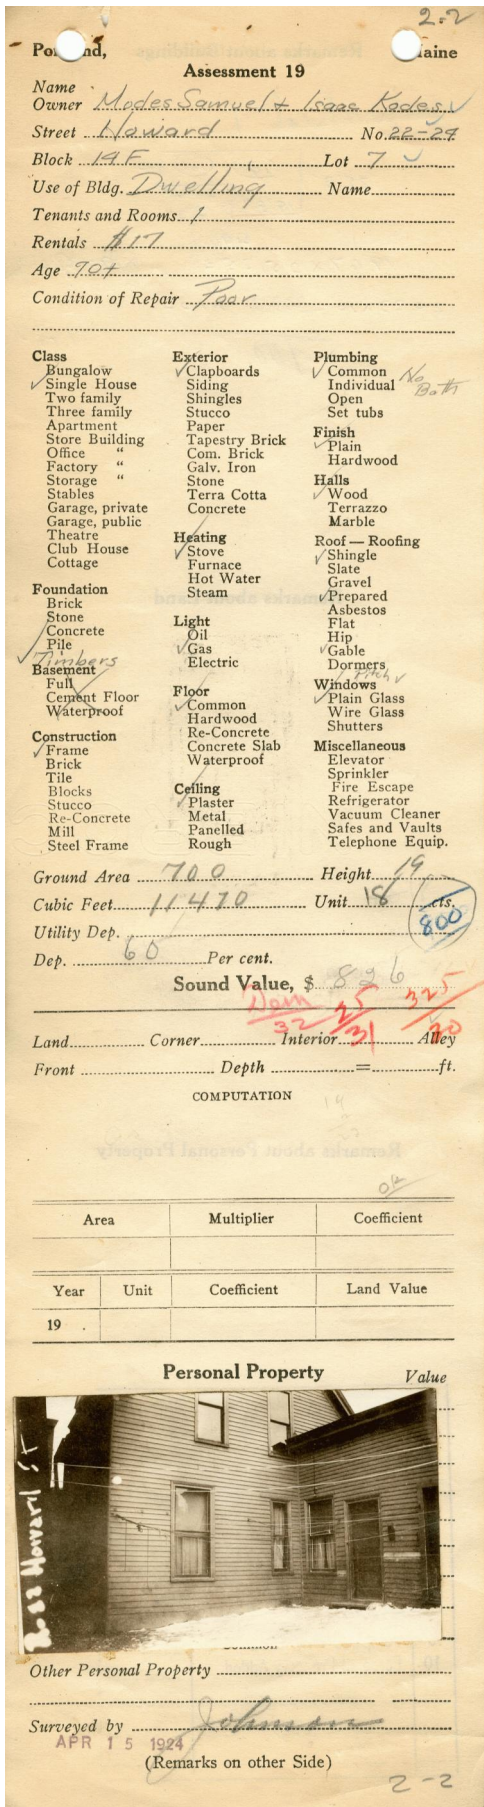 2-2
Portland, Maine
Assessment 19
Name
Owner Modes Samuel & Isaac Kades
Street Howard No. 22-24
Block 14F Lot 7
Use of Bldg. Dwelling Name
Tenants and Rooms 1
Rentals $17
Age 70+
Condition of Repair Poor
Class
Bungalow
Single House
Two family
Three family
Apartment
Store Building
Office "
Factory "
Storage "
Stables
Garage, private
Garage, public
Theatre
Club House
Cottage
Foundation
Brick
Stone
Concrete
Pile
Timbers
Basement
Full
Cement Floor
Waterproof
Construction
Frame
Brick
Tile
Blocks
Stucco
Re-Concrete
Mill
Steel Frame
Exterior
Clapboards
Siding
Shingles
Stucco
Paper
Tapestry Brick
Com. Brick
Galv. Iron
Stone
Terra Cotta
Concrete
Heating
Stove
Furnace
Hot Water
Steam
Light
Oil
Gas
Electric
Floor
Common
Hardwood
Re-Concrete
Concrete Slab
Waterproof
Ceiling
Plaster
Metal
Panelled
Rough
Plumbing
Common No
Individual Bath
Open
Set tubs
Finish
Plain
Hardwood
Halls
Wood
Terrazzo
Marble
Roof — Roofing
Shingle
Slate
Gravel
Prepared
Asbestos
Flat
Hip
Gable
Dormers
Pitch
Windows
Plain Glass
Wire Glass
Shutters
Miscellaneous
Elevator
Sprinkler
Fire Escape
Refrigerator
Vacuum Cleaner
Safes and Vaults
Telephone Equip.
Ground Area 700 Height 19
Cubic Feet 11470 Unit 18 cts.
800
Utility Dep.
Dep. 60 Per cent.
Sound Value, $ 826
32 25/31 325/30
Land Corner Interior Alley
Front Depth = ft.
COMPUTATION
OK
Area Multiplier Coefficient
Year Unit Coefficient Land Value
19 .
Personal Property Value
22 Howard St
Common
Other Personal Property
Surveyed by Johnson
APR 15 1924
(Remarks on other Side)
2-2